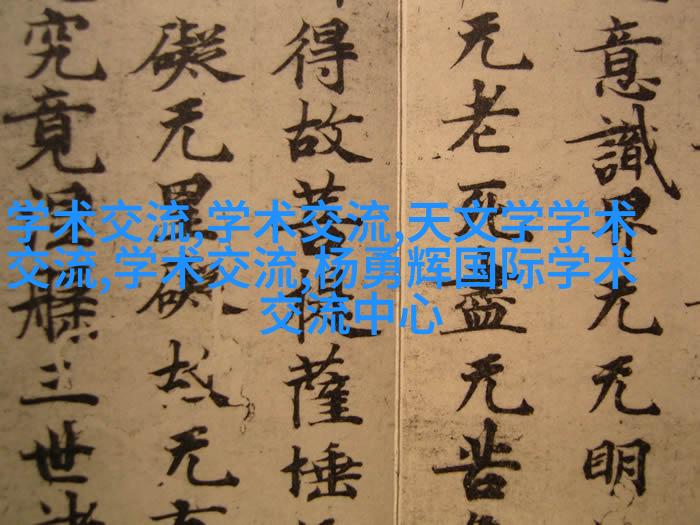 学术交流,学术交流,天文学学术
交流,学术交流,杨勇辉国际学术
交流中心
意識界无无明
无老死盡无苦
得故菩提薩埵
礙无罣礙故无有
究竟涅槃三世諸